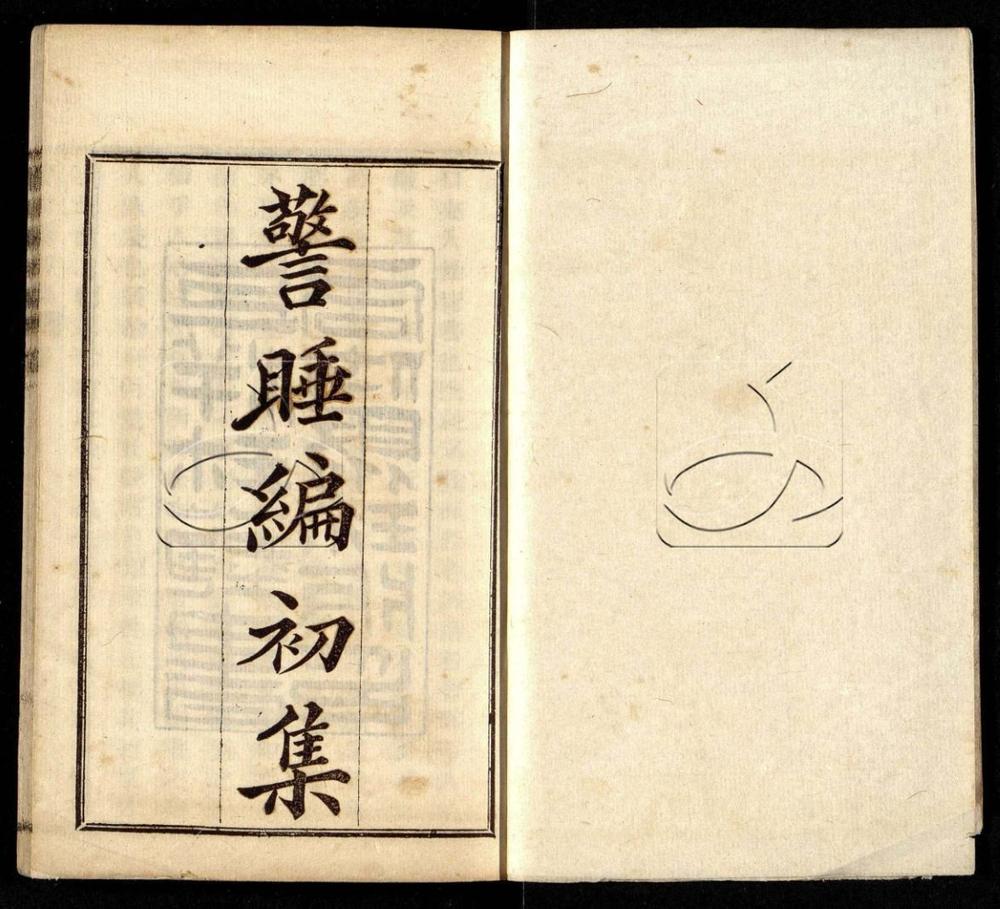 警睡編初集